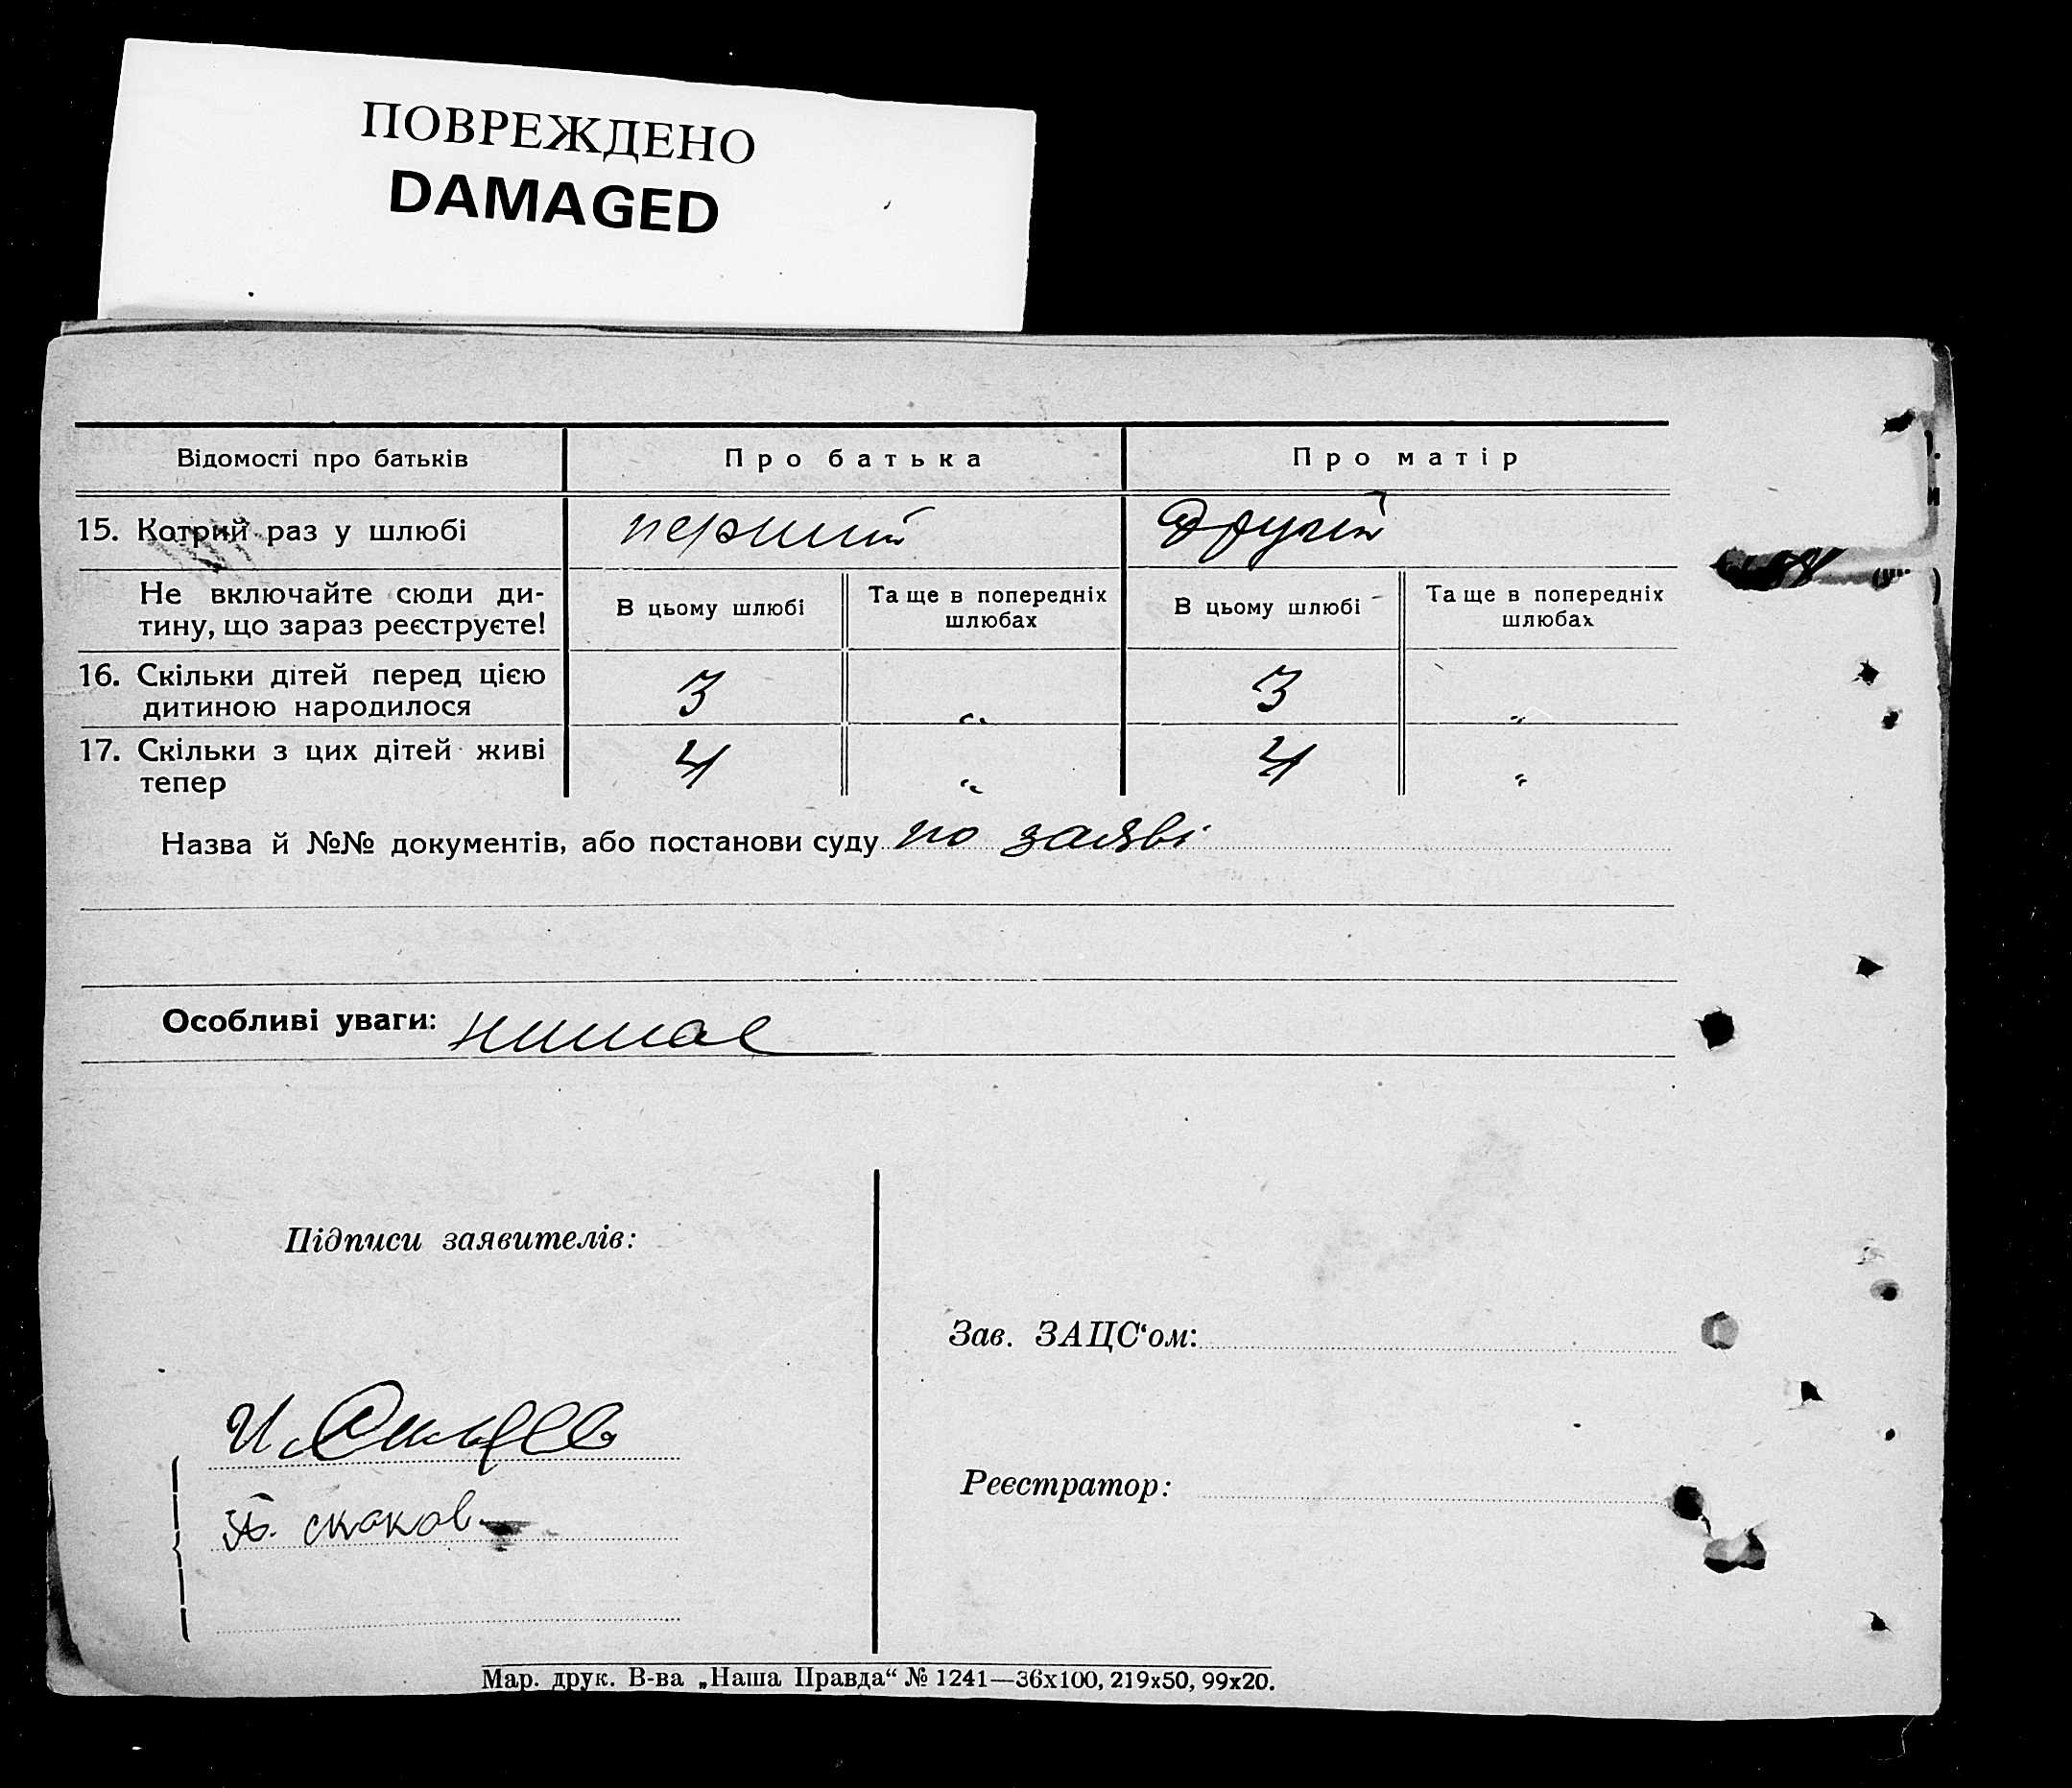 ПОВРЕЖДЕНО
DAMAGED
Відомості про батьків
Про батька
Про матір
15. Котрий раз у шлюбі
перший
другий
Не включайте сюди ди-
тину, що зараз реєструєте!
В цьому шлюбі
Та ще в попередніх
шлюбах
В цьому шлюбі
Та ще в попередніх
шлюбах
16. Скільки дітей перед цією
дитиною народилося
3
„
3
„
17. Скільки з цих дітей живі
тепер
4
„
4
„
Назва й №№ документів, або постанови суду по заяві
Особливі уваги: немає
Підписи заявителів:
Зав. ЗАЦС‘ом:
И.
скаков
Реєстратор:
Мар. друк. В-ва „Наша Правда“ № 1241—36х100, 219х50, 99х20.